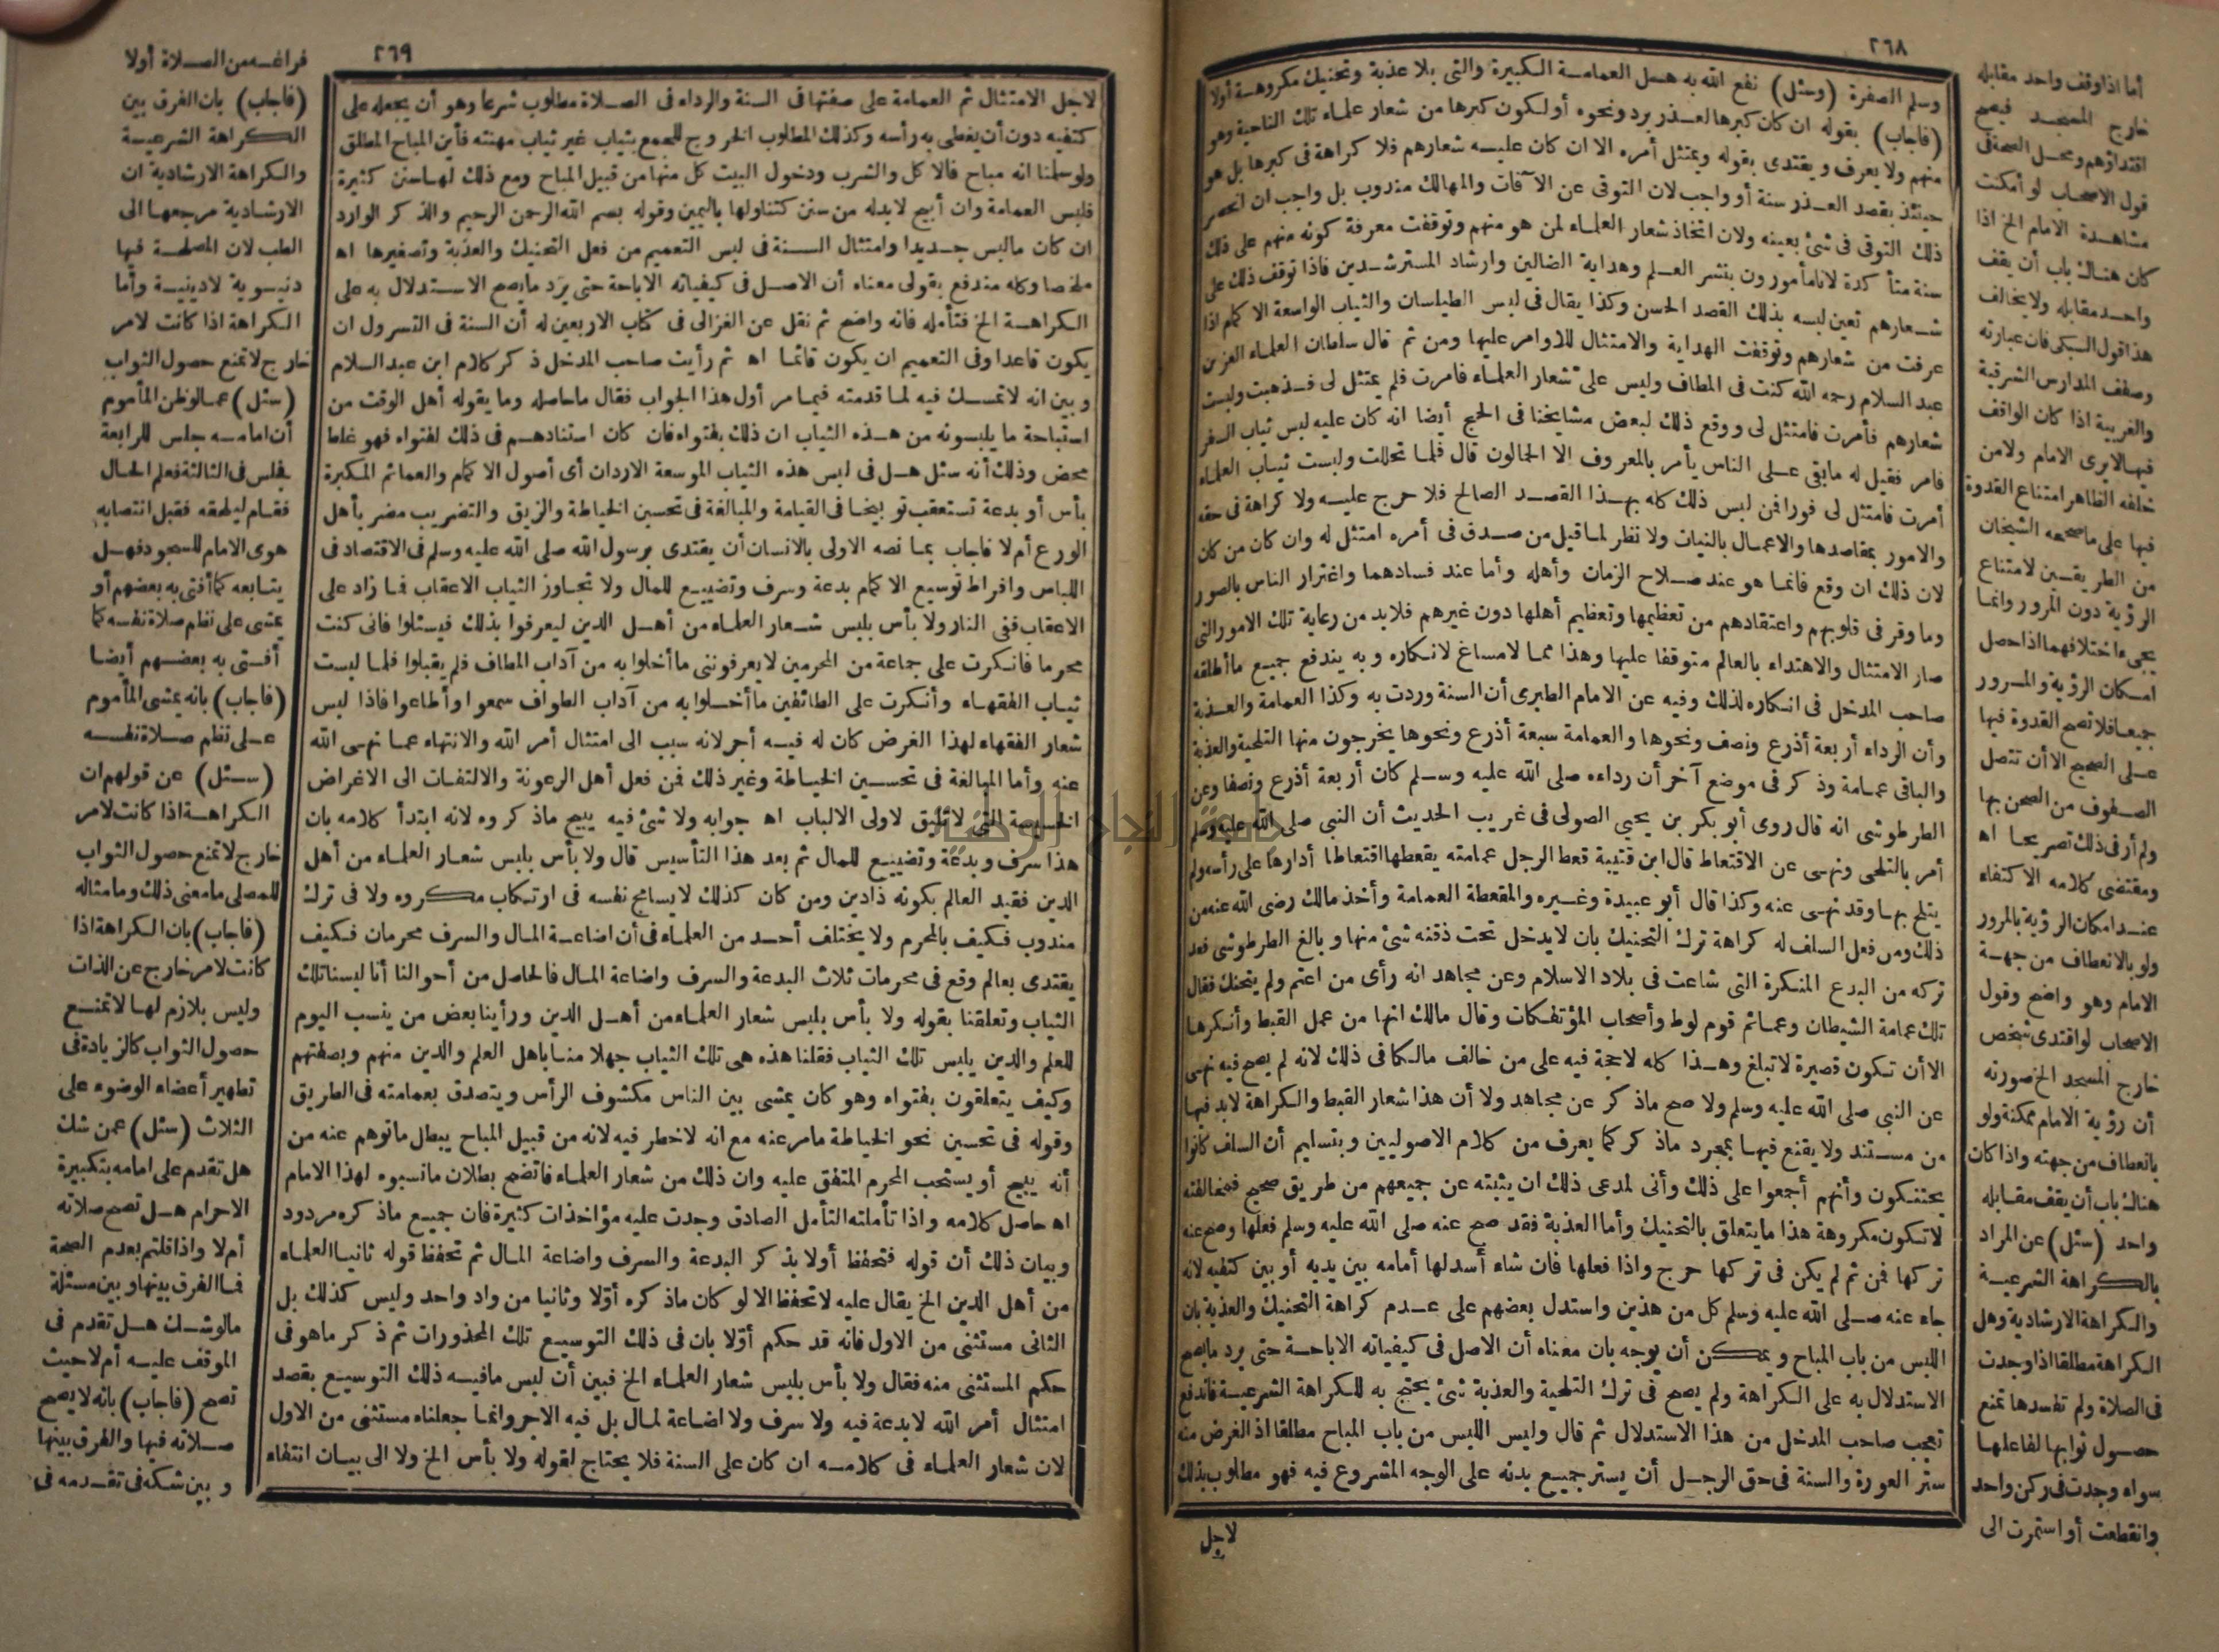 ٢٦٨
وسلم الصفرة (وسئل) نفع الله به هل العمامة الكبيرة والتى بلا عذبة وتحنيك مكروهة أولا
(فأجاب) بقوله ان كان كبرها لعذر برد ونحوه أو لكون كبرها من شعار علماء تلك الناحية وهو
منهم ولا يعرف ويقتدى بقوله ويمتثل أمره الا ان كان عليه شعارهم فلا كراهة فى كبرها بل هو
حينئذ بقصد العذر سنة أو واجب لان التوقى عن الآفات والمهالك مندوب بل واجب ان انحصر
ذلك التوقى فى شئ بعينه ولان اتخاذ شعار العلماء لمن هو منهم وتوقفت معرفة كونه منهم على ذلك
سنة متأكدة لانا مأمورون بنشر العلم وهداية الضالين وارشاد المسترشدين فاذا توقف ذلك على
شعارهم تعين لبسه بذلك القصد الحسن وكذا يقال فى لبس الطيلسان والثياب الواسعة الاكمام اذا
عرفت من شعارهم وتوقفت الهداية والامتثال للاوامر عليها ومن ثم قال سلطان العلماء العز بن
عبد السلام رحمه الله كنت فى المطاف وليس على شعار العلماء فامرت فلم يمتثل لى فذهبت ولبست
شعارهم فأمرت فامتثل لى ووقع ذلك لبعض مشايخنا فى الحج أيضا انه كان عليه لبس ثياب السفر
فامر فقيل له مابقى على الناس يأمر بالمعروف الا الجمالون قال فلما تحللت ولبست ثياب العلماء
أمرت فامتثل لى فورا فمن لبس ذلك كله بهذا القصد الصالح فلا حرج عليه ولا كراهة فى حقه
والامور بمقاصدها والاعمال بالنيات ولا نظر لما قيل من صدق فى أمره امتثل له وان كان من كان
لان ذلك ان وقع فانما هو عند صلاح الزمان وأهله وأما عند فسادهما واغترار الناس بالصور
وما وقر فى قلوبهم واعتقادهم من تعظيمها وتعظيم أهلها دون غيرهم فلابد من رعاية تلك الامور التى
صار الامتثال والاهتداء بالعالم متوقفا عليها وهذا مما لا مساغ لانكاره وبه يندفع جميع ما أطلقه
صاحب المدخل فى انكاره لذلك وفيه عن الامام الطبرى أن السنة وردت به وكذا العمامة والعذبة
وأن الرداء أربعة أذرع ونصف ونحوها والعمامة سبعة أذرع ونحوها يخرجون منها التلحية والعذبة
والباقى عمامة وذكر فى موضع آخر أن رداءه صلى الله عليه وسلم كان أربعة أذرع ونصفا وعن
الطرطوشى انه قال روى أبو بكر بن يحيى الصولى فى غريب الحديث أن النبى صلى الله عليه وسلم
أمر بالتلحى ونهى عن الاقتعاط قال ابن قتيبة قعط الرجل عمامته يقعطها اقتعاطا أدارها على رأسه ولم
يتلح بها وقد نهى عنه وكذا قال أبو عبيدة وغيره والمقعطة العمامة وأخذ مالك رضى الله عنه من
ذلك ومن فعل السلف له كراهة ترك التحنيك بان لا يدخل تحت ذقنه شئ منها وبالغ الطرطوشى فعد
تركه من البدع المنكرة التى شاعت فى بلاد الاسلام وعن مجاهد انه رأى من اعتم ولم يتحنك فقال
تلك عمامة الشيطان وعمائم قوم لوط وأصحاب المؤتفكات وقال مالك انها من عمل القبط وأنكرها
الا أن تكون قصيرة لا تبلغ وهذا كله لا حجة فيه على من خالف مالكا فى ذلك لانه لم يصح فيه نهى
عن النبى صلى الله عليه وسلم ولا صح ماذكر عن مجاهد ولا أن هذا شعار القبط والكراهة لابد فيها
من مستند ولا يقنع فيها بمجرد ماذكر كما يعرف من كلام الاصوليين وبتسليم أن السلف كانوا
يحتنكون وأنهم أجمعوا على ذلك وأنى لمدعى ذلك ان يثبته عن جميعهم من طريق صحيح فمخالفته
لا تكون مكروهة هذا ما يتعلق بالتحنيك وأما العذبة فقد صح عنه صلى الله عليه وسلم فعلها وصح عنه
تركها فمن ثم لم يكن فى تركها حرج واذا فعلها فان شاء أسدلها أمامه بين يديه أو بين كتفيه لانه
جاء عنه صلى الله عليه وسلم كل من هذين واستدل بعضهم على عدم كراهة التحنيك والعذبة بان
اللبس من باب المباح ويمكن أن يوجه بان معناه أن الاصل فى كيفياته الاباحة حتى يرد مايصح
الاستدلال به على الكراهة ولم يصح فى ترك التلحية والعذبة شئ يحتج به للكراهة الشرعية فاندفع
تعجب صاحب المدخل من هذا الاستدلال ثم قال وليس اللبس من باب المباح مطلقا اذ الفرض منه
ستر العورة والسنة فى حق الرجل أن يستر جميع بدنه على الوجه المشروع فيه فهو مطلوب بذلك
لاجل
أما اذا وقف واحد مقابله
خارج المسجد فيصح
اقتداؤهم ومحل الصحة فى
قول الاصحاب لو أمكنت
مشاهدة الامام الخ اذا
كان هناك باب أن يقف
واحد مقابله ولا يخالف
هذا قول السبكى فان عبارته
وصفف المدارس الشرقية
والغربية اذا كان الواقف
فيها لا يرى الامام ولا من
خلفه الظاهر امتناع القدوة
فيها على ماصححه الشيخان
من الطريقين لامتناع
الرؤية دون المرور وانما
يجىء اختلافهما اذا حصل
امكان الرؤية والمرور
جميعا فلا تصح القدوة فيها
على الصحيح الا أن تتصل
الصفوف من الصحن بها
ولم أر فى ذلك تصريحا اه
ومقتضى كلامه الاكتفاء
عند امكان الرؤية بالمرور
ولو بالانعطاف من جهة
الامام وهو واضح وقول
الاصحاب لو اقتدى شخص
خارج المسجد الخ صورته
أن رؤية الامام ممكنة ولو
بانعطاف من جهته واذا كان
هناك باب أن يقف مقابله
واحد (سئل) عن المراد
بالكراهة الشرعية
والكراهة الارشادية وهل
الكراهة مطلقا اذا وجدت
فى الصلاة ولم تفسدها تمنع
حصول ثوابها لفاعلها
سواء وجدت فى ركن واحد
وانقطعت أو استمرت الى
٢٦٩
لاجل الامتثال ثم العمامة على صفتها فى السنة والرداء فى الصلاة مطلوب شرعا وهو أن يجعله على
كتفيه دون أن يغطى به رأسه وكذلك المطلوب الخروج للجمع بثياب غير ثياب مهنته فأين المباح المطلق
ولو سلمنا انه مباح فالاكل والشرب ودخول البيت كل منها من قبيل المباح ومع ذلك لها سنن كثيرة
فلبس العمامة وان أبيح لابد له من سنن كتناولها باليمين وقوله بسم الله الرحمن الرحيم والذكر الوارد
ان كان مالبس جديدا وامتثال السنة فى لبس التعميم من فعل التحنيك والعذبة وتصغيرها اه
ملخصا وكله مندفع بقولى معناه أن الاصل فى كيفياته الاباحة حتى يرد مايصح الاستدلال به على
الكراهة الخ فتأمله فانه واضح ثم نقل عن الغزالى فى كتاب الاربعين له أن السنة فى التسرول ان
يكون قاعدا وفى التعميم ان يكون قائما اه ثم رأيت صاحب المدخل ذكر كلام ابن عبد السلام
وبين انه لا تمسك فيه لما قدمته فيما مر أول هذا الجواب فقال ماحاصله وما يقوله أهل الوقت من
استباحة ما يلبسونه من هذه الثياب ان ذلك بفتواه فان كان استنادهم فى ذلك لفتواه فهو غلط
محض وذلك أنه سئل هل فى لبس هذه الثياب الموسعة الاردان أى أصول الاكمام والعمائم المكبرة
بأس أو بدعة تستعقب توبيخا فى القيامة والمبالغة فى تحسين الخياطة والزيق والتضريب مضر بأهل
الورع أم لا فاجاب بما نصه الاولى بالانسان أن يقتدى برسول الله صلى الله عليه وسلم فى الاقتصاد فى
اللباس وافراط توسيع الاكمام بدعة وسرف وتضييع للمال ولا تجاوز الثياب الاعقاب فما زاد على
الاعقاب ففى النار ولا بأس بلبس شعار العلماء من أهل الدين ليعرفوا بذلك فيسئلوا فانى كنت
محرما فانكرت على جماعة من المحرمين لا يعرفوننى ماأخلوا به من آداب المطاف فلم يقبلوا فلما لبست
ثياب الفقهاء وأنكرت على الطائفين ماأخلوا به من آداب الطواف سمعوا وأطاعوا فاذا لبس
شعار الفقهاء لهذا الغرض كان له فيه أجر لانه سبب الى امتثال أمر الله والانتهاء عما نهى الله
عنه وأما المبالغة فى تحسين الخياطة وغير ذلك فمن فعل أهل الرعونة والالتفات الى الاغراض
الخسيسة التى لا تليق لاولى الالباب اه جوابه ولا شئ فيه يبيح ماذكروه لانه ابتدأ كلامه بان
هذا سرف وبدعة وتضييع للمال ثم بعد هذا التأسيس قال ولا بأس بلبس شعار العلماء من أهل
الدين فقيد العالم بكونه ذا دين ومن كان كذلك لا يسامح نفسه فى ارتكاب مكروه ولا فى ترك
مندوب فكيف بالمحرم ولا يختلف أحد من العلماء فى أن اضاعة المال والسرف محرمان فكيف
يقتدى بعالم وقع فى محرمات ثلاث البدعة والسرف واضاعة المال فالحاصل من أحوالنا أنا لبسنا تلك
الثياب وتعلقنا بقوله ولا بأس بلبس شعار العلماء من أهل الدين ورأينا بعض من ينسب اليوم
للعلم والدين يلبس تلك الثياب فقلنا هذه هى تلك الثياب جهلا منا باهل العلم والدين منهم وبصفتهم
وكيف يتعلقون بفتواه وهو كان يمشى بين الناس مكشوف الرأس ويتصدق بعمامته فى الطريق
وقوله فى تحسين نحو الخياطة مامر عنه مع انه لا خطر فيه لانه من قبيل المباح يبطل ماتوهم عنه من
أنه يبيح أو يستحب المحرم المتفق عليه وان ذلك من شعار العلماء فاتضح بطلان مانسبوه لهذا الامام
اه حاصل كلامه واذا تأملته التأمل الصادق وجدت عليه مؤاخذات كثيرة فان جميع ماذكره مردود
وبيان ذلك أن قوله فتحفظ أولا بذكر البدعة والسرف واضاعة المال ثم تحفظ قوله ثانيا العلماء
من أهل الدين الخ يقال عليه لا تحفظ الا لو كان ماذكره أولا وثانيا من واد واحد وليس كذلك بل
الثانى مستثنى من الاول فانه قد حكم أولا بان فى ذلك التوسيع تلك المحذورات ثم ذكر ماهو فى
حكم المستثنى منه فقال ولا بأس بلبس شعار العلماء الخ فبين أن لبس مافيه ذلك التوسيع بقصد
امتثال أمر الله لا بدعة فيه ولا سرف ولا اضاعة لمال بل فيه الاجر وانما جعلناه مستثنى من الاول
لان شعار العلماء فى كلامه ان كان على السنة فلا يحتاج لقوله ولا بأس الخ ولا الى بيان انتفاء
فراغه من الصلاة أولا
(فاجاب) بان الفرق بين
الكراهة الشرعية
والكراهة الارشادية ان
الارشادية مرجعها الى
الطب لان المصلحة فيها
دنيوية لا دينية وأما
الكراهة اذا كانت لامر
خارج لا تمنع حصول الثواب
(سئل) عما لو ظن المأموم
أن امامه جلس للرابعة
فجلس فى الثالثة فعلم الحال
فقام ليلحقه فقبل انتصابه
هوى الامام للسجود فهل
يتابعه كما أفتى به بعضهم أو
يمشى على نظم صلاة نفسه كما
أفتى به بعضهم أيضا
(فاجاب) بانه يمشى المأموم
على نظم صلاة نفسه
(سئل) عن قولهم ان
الكراهة اذا كانت لامر
خارج لا تمنع حصول الثواب
للمصلى مامعنى ذلك وما مثاله
(فاجاب) بان الكراهة اذا
كانت لامر خارج عن الذات
وليس بلازم لها لا تمنع
حصول الثواب كالزيادة فى
تطهير أعضاء الوضوء على
الثلاث (سئل) عمن شك
هل تقدم على امامه بتكبيرة
الاحرام هل تصح صلاته
أم لا واذا قلتم بعدم الصحة
فما الفرق بينها وبين مسئلة
مالو شك هل تقدم فى
الموقف عليه أم لا حيث
تصح (فاجاب) بانه لا يصح
صلاته فيها والفرق بينها
وبين شكه فى تقدمه فى
جامعة النجاح الوطنية